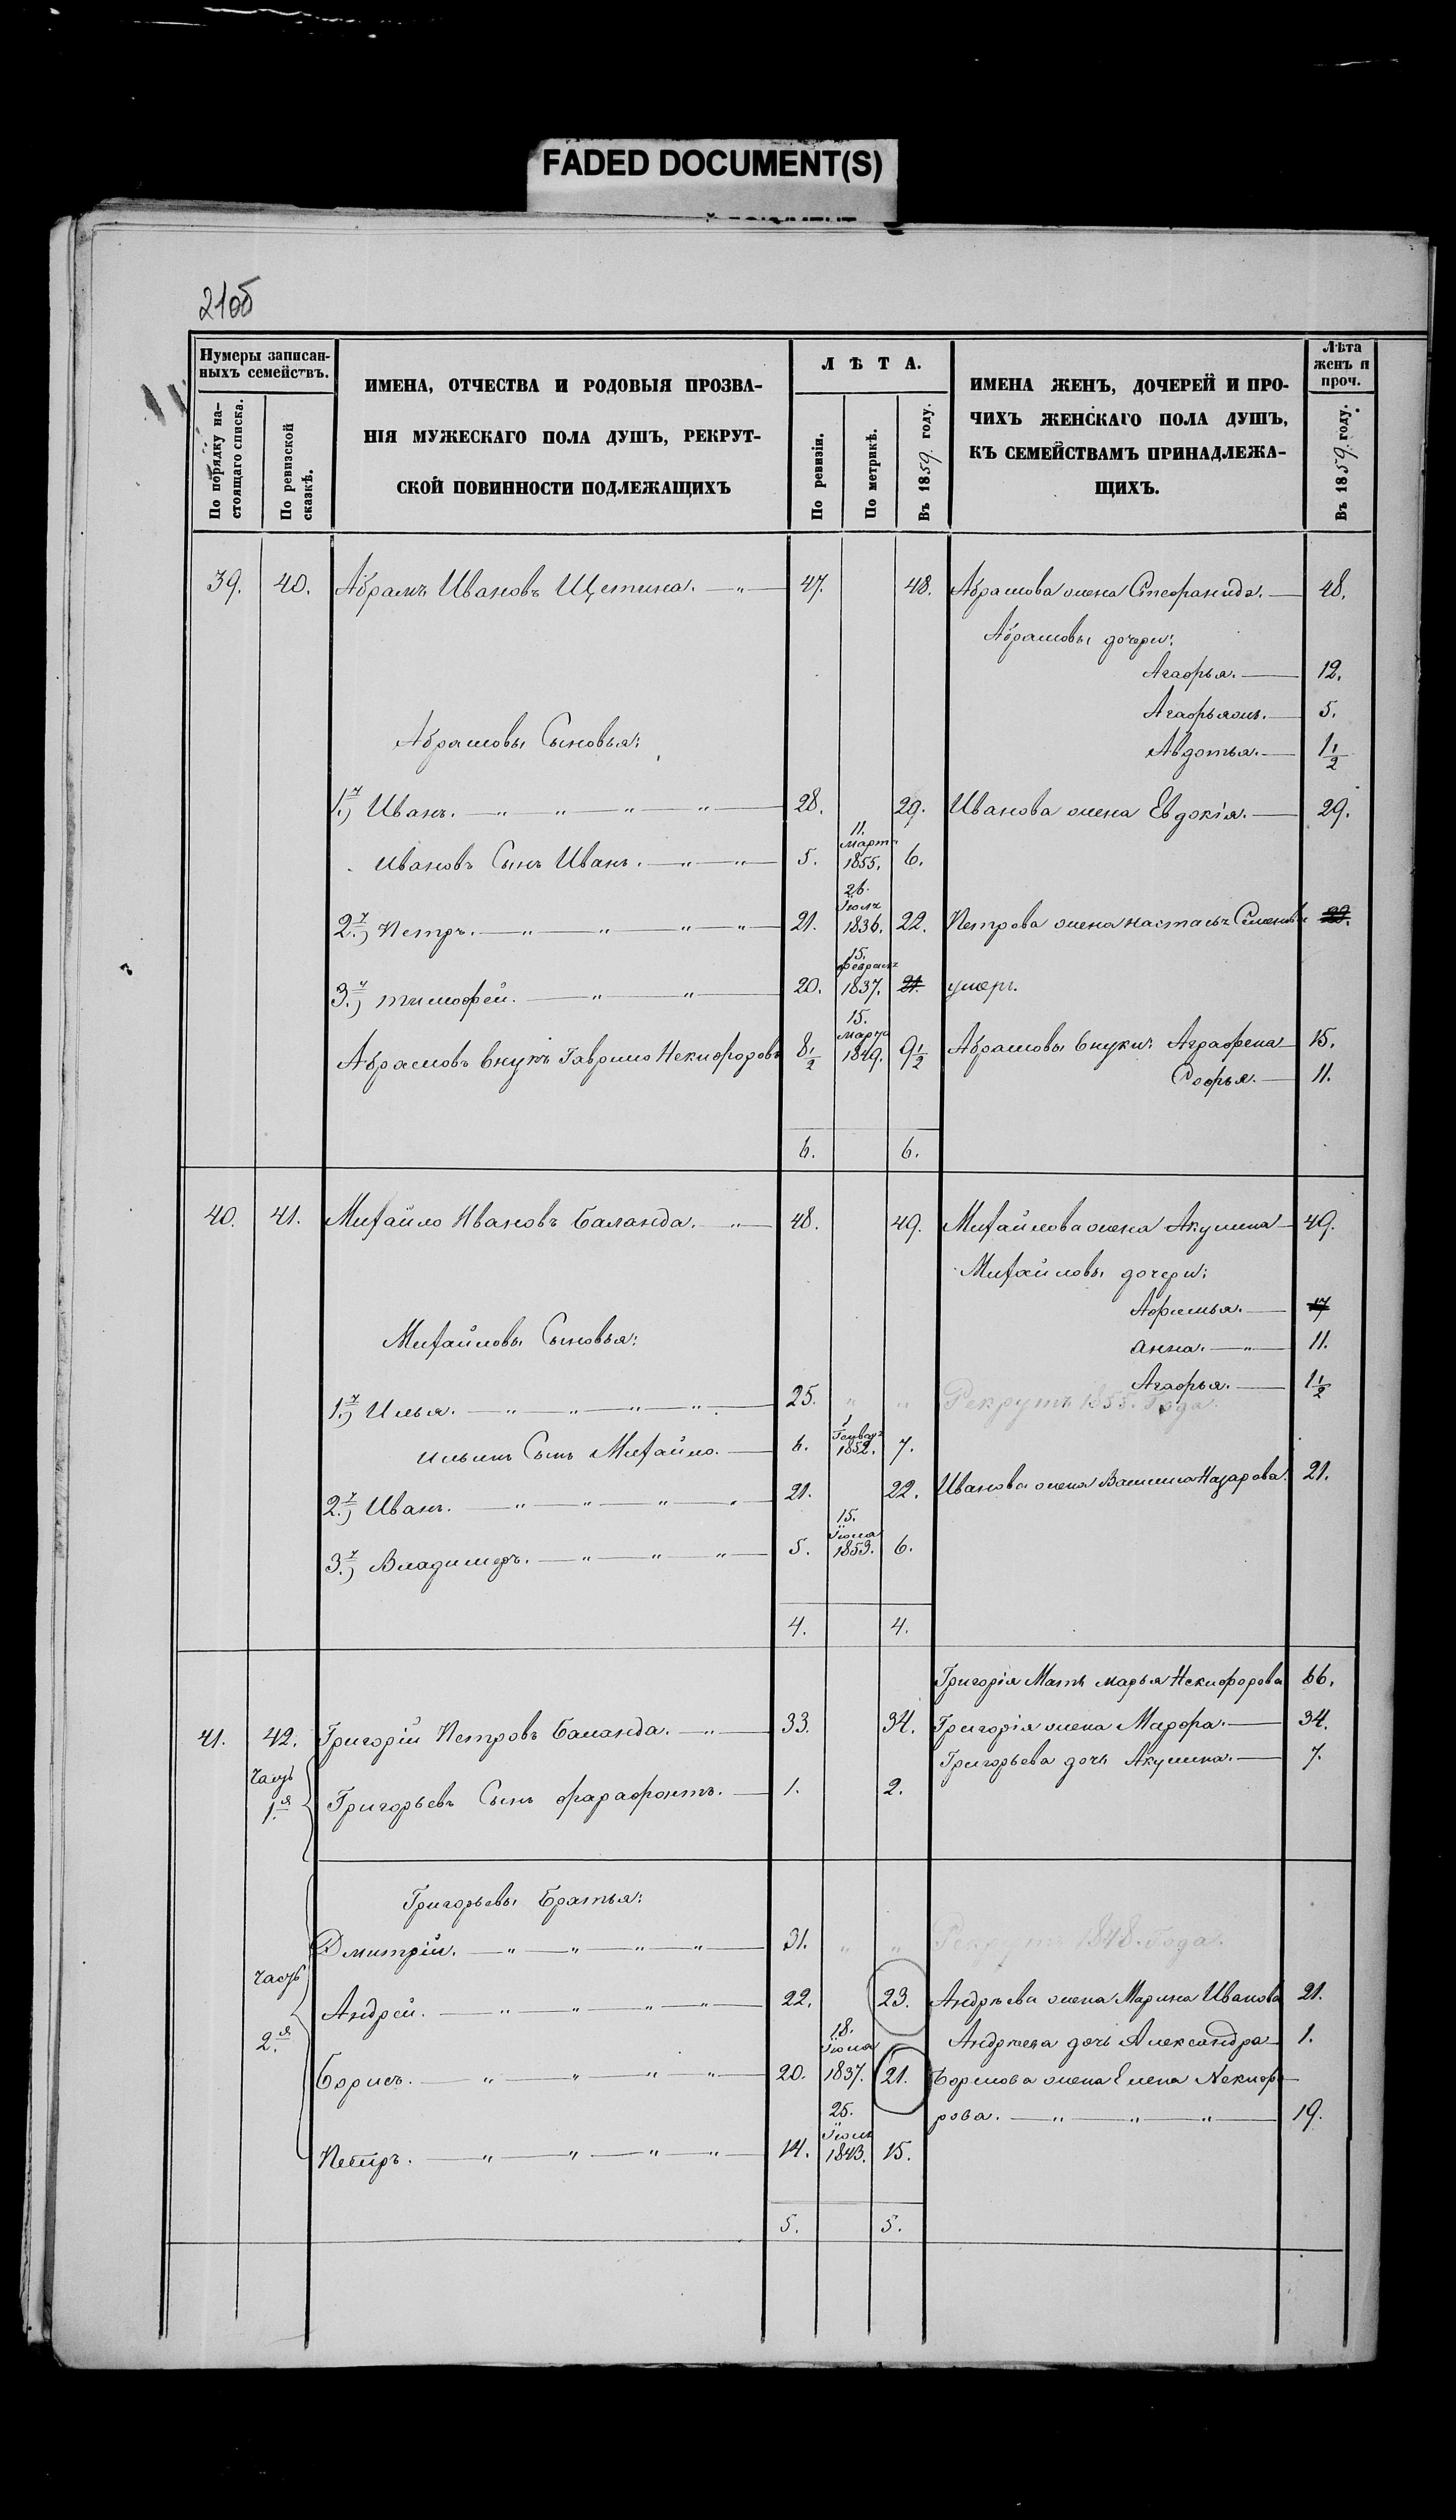 FADED DOCUMENT(S)
210б
Нумеры записан-
ныхъ семействъ.
По порядку на-
стоящаго списка.
По ревизской
сказкѣ.
ИМЕНА, ОТЧЕСТВА И РОДОВЫЯ ПРОЗВА-
НІЯ МУЖЕСКАГО ПОЛА ДУШЪ, РЕКРУТ-
СКОЙ ПОВИННОСТИ ПОДЛЕЖАЩИХЪ
Л Ѣ Т А.
По ревизіи.
По метрикѣ.
Въ 1859. году.
ИМЕНА ЖЕНЪ, ДОЧЕРЕЙ И ПРО-
ЧИХЪ ЖЕНСКАГО ПОЛА ДУШЪ,
КЪ СЕМЕЙСТВАМЪ ПРИНАДЛЕЖА-
ЩИХЪ.
Лѣта
женъ и
проч.
Въ 1859. году.
39. 40. Абрамъ Ивановъ Щетина. — „ — 47. 48. Абрамова жена Стефанида. — 48.
Абрамовы дочери:
Агафья. — 12.
Агафья 5.
Абрамовы Сыновья:
Авдотья. — 1 1/2
1.й) Иванъ. — „ — „ — „ — „ — 28. 29. Иванова жена Евдокія. — 29.
Ивановъ Сынъ Иванъ. — „ — „ — 5. 11. Марта 1855. 6.
2.й) Петръ. — „ — „ — „ — „ — 21. 26. Іюля 1836. 22. Петрова жена Настасья Семенова 22.
3.й) Тимофей. — „ — „ — 20. 15. Февраля 1837. 21. умеръ.
Абрамовъ внукъ Гаврило Некифоровъ 8 1/2 15. Марта 1849. 9 1/2 Абрамовы внуки: Аграфена — 15.
Софья. — 11.
6. 6.
40. 41. Михайло Ивановъ Баланда. — „ — 48. 49. Михайлова жена Акулина — 49.
Михайловы дочери:
Афимья. — 17
Михайловы Сыновья:
Анна. — „ — 11.
Агафья. — 1 1/2
1.й) Илья. — „ — „ — „ — „ — 25. „ „ Рекрутъ 1855. Года.
Ильинъ Сынъ Михайло. — 6. 1 Генваря 1852. 7.
2.й) Иванъ. — „ — „ — „ — „ 21. 22. Иванова жена Назарова. 21.
3.й) Владимиръ. — „ — „ — „ — 5. 15. Іюля 1853. 6.
4. 4.
Григорія Мать Марья Некифорова 66.
41. 42. Григорій Петровъ Баланда. — „ — 33. 34. Григорія жена Марфа. — 34.
Часть 1.я
Григорьева дочь Акулина. — 7.
Григорьевъ Сынъ Фарафонтъ. — 1. 2.
Григорьевы Братья:
Дмитрій. — „ — „ — „ — „ — 31. „ „ Рекрутъ 1848. Года.
Часть 2.я
Андрей. — „ — „ — „ — 22. 23. Андреева жена Марина Иванова 21.
Андреева дочь Александра — 1.
Борисъ. — „ — „ — „ — „ — 20. 18. Іюля 1837. 21. Борисова жена Елена Некифо-
рова. — „ — „ — „ — 19.
Петръ. — „ — „ — „ — „ — 14. 25. Іюля 1843. 15.
5. 5.